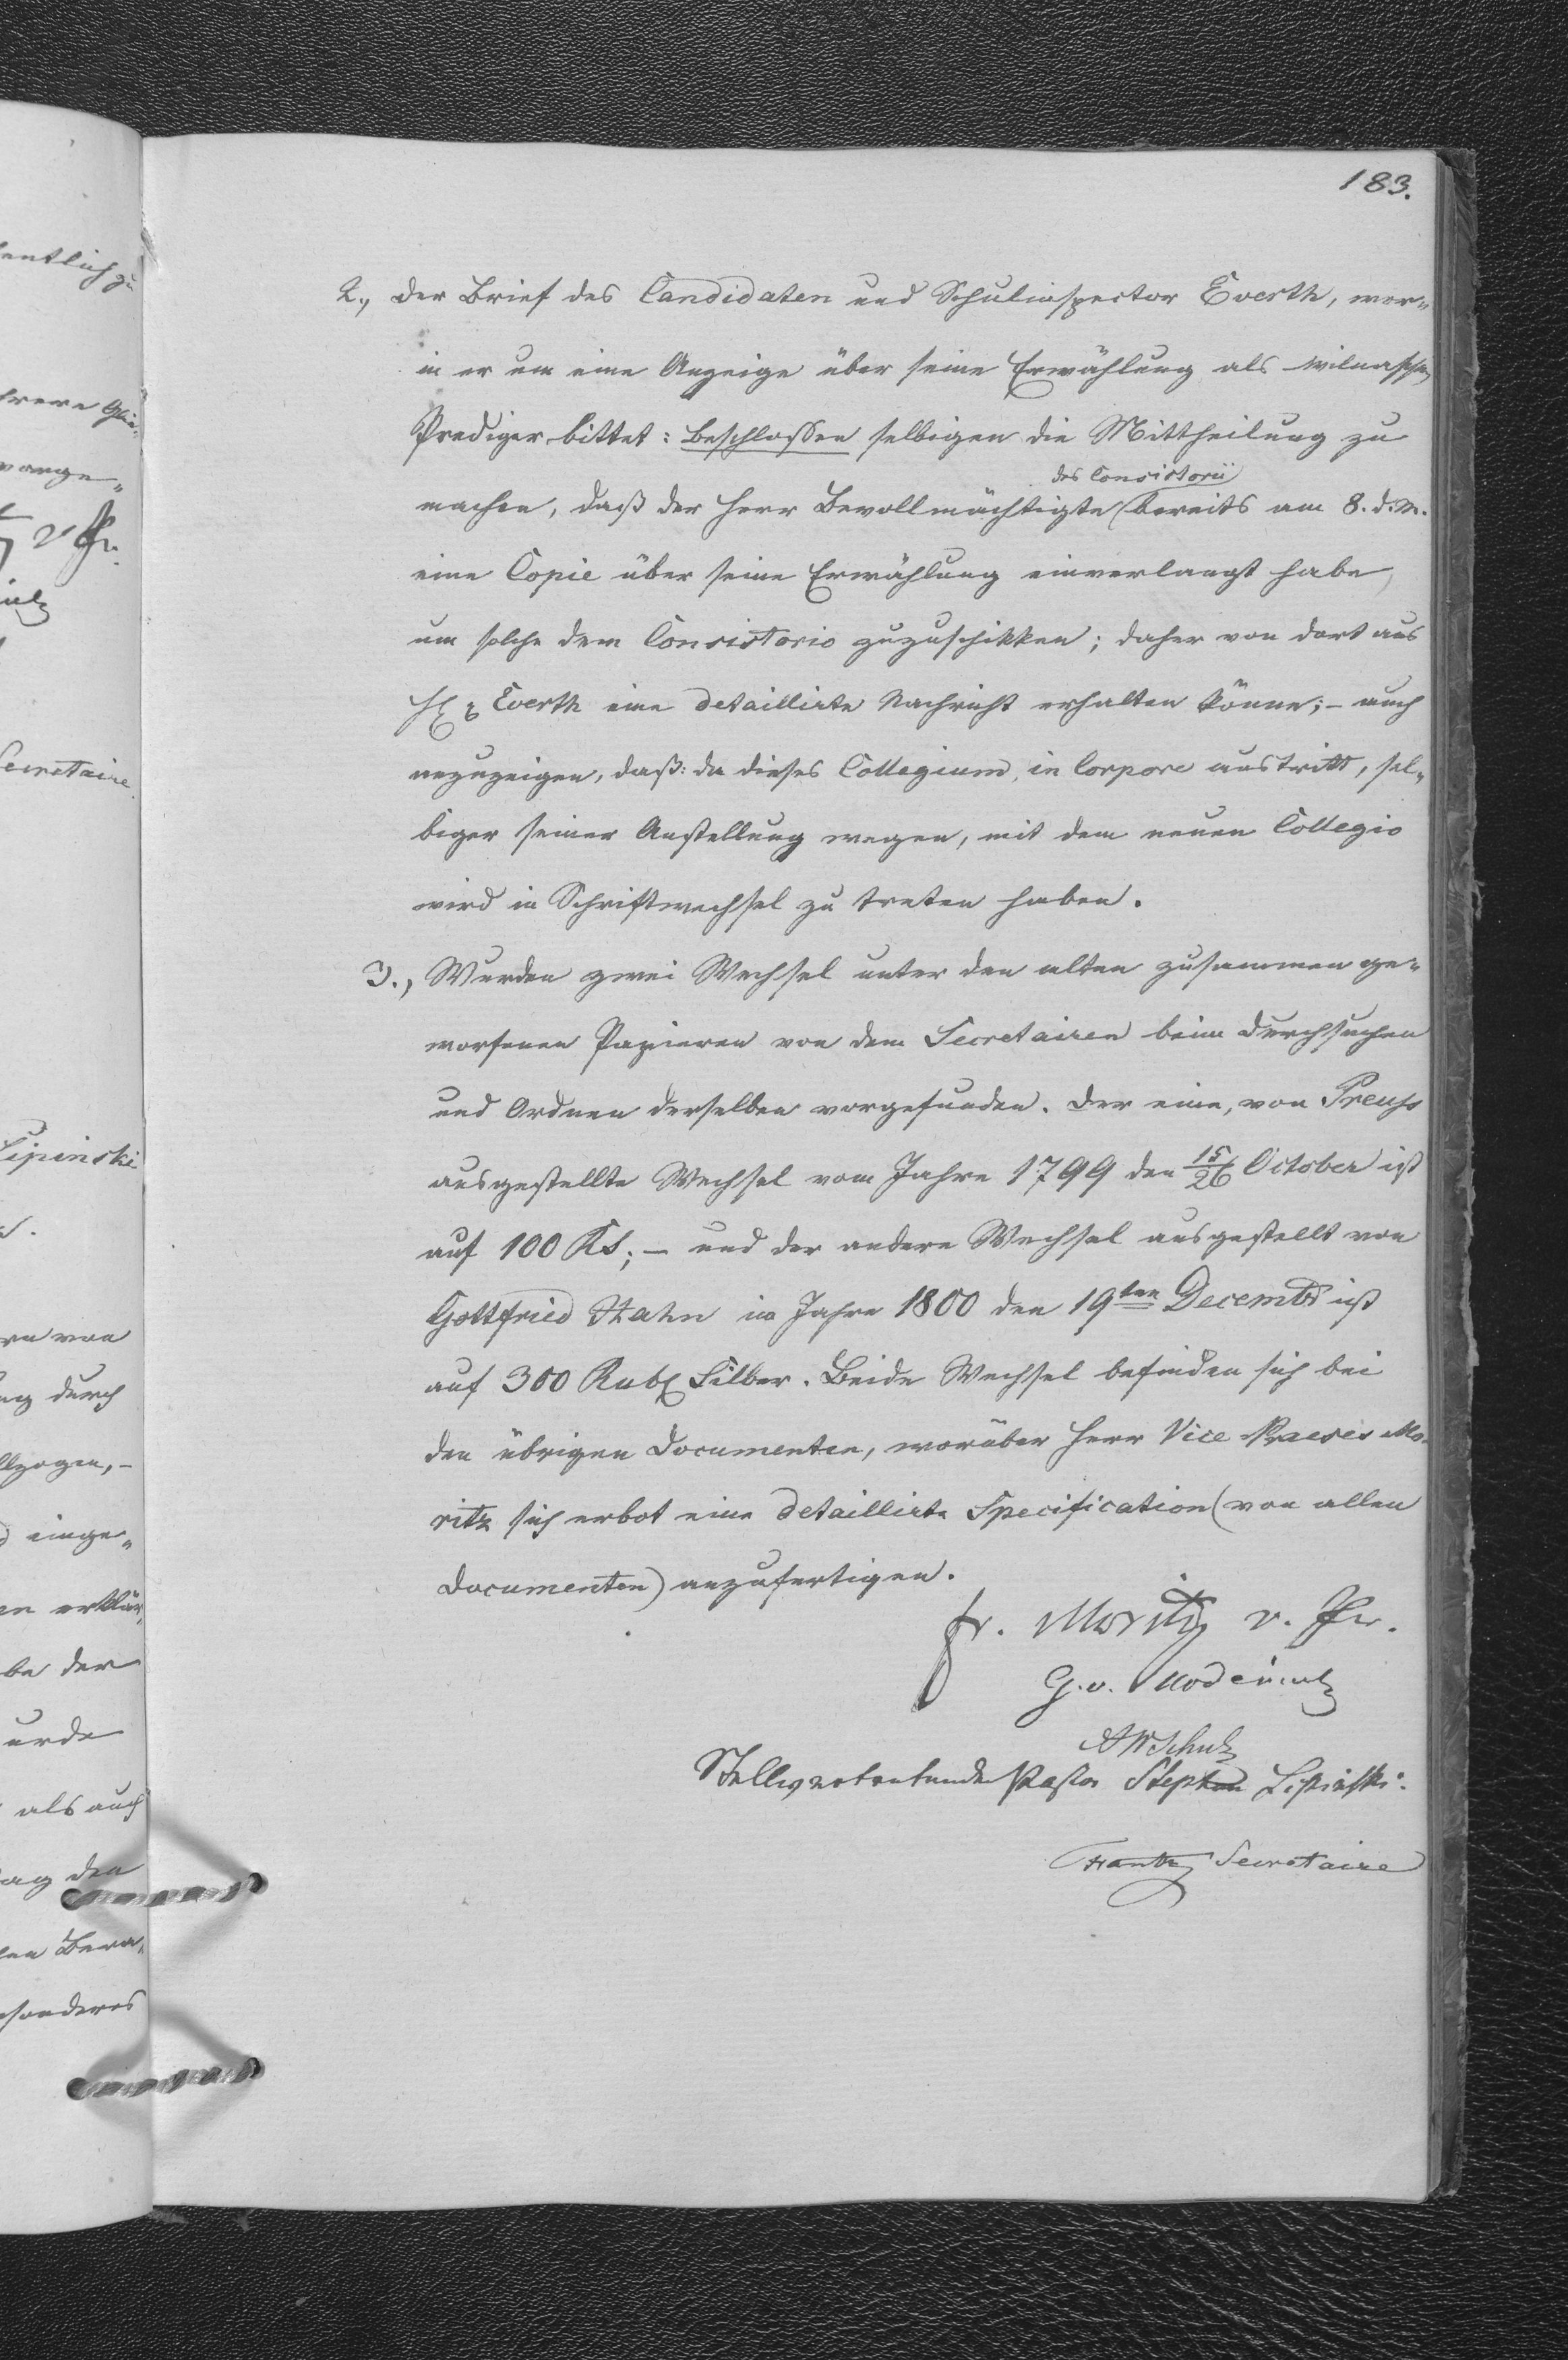 183.
2., Der Brief des Candidaten und Schulinspector Everth, wor-
in er um eine Anzeige über seine Erwählung als wilnascher
Prediger bittet: beschlossen selbigen die Mittheilung zu
des Consistorii
machen, daß der Herr Bevollmächtigte bereits am 8. d. M.
eine Copie über seine Erwählung einverlangt habe,
um solche dem Consistorio zuzuschikken; daher von dort aus
H Everth eine detaillirte Nachricht erhalten könne; – auch
anzuzeigen, daß: da dieses Collegium, in Corpore austritt, sel-
biger seiner Anstellung wegen, mit dem neuen Collegio
wird in Schriftwechsel zu treten haben.
3., Wurden zwei Wechsel unter den alten zusammen ge-
worfenen Papieren von dem Secretairen beim Durchsuchen
und Ordnen derselben vorgefunden. Der eine, von Preuss
ausgestellte Wechsel vom Jahre 1799 den 15/26 October ist
auf 100 Rs; – und der andere Wechsel ausgestellt von
Gottfried Hahn im Jahre 1800 den 19ten Decembr ist
auf 300 Rubl Silber. Beide Wechsel befinden sich bei
den übrigen Documenten, worüber Herr Vice Praeses Mo-
ritz sich erbot eine detaillirte Specification (von allen
Documenten) anzufertigen.
Fr. Moritz v. Pr.
G. v.
A W Schulz
Stellvertretender Pastor Stephan Lipinski.
Secretaire
entlich zu
vorge-
Secretaire.
Lipinski
von
durch
einge-
erklär-
der
urde
als auch
den
sonderes